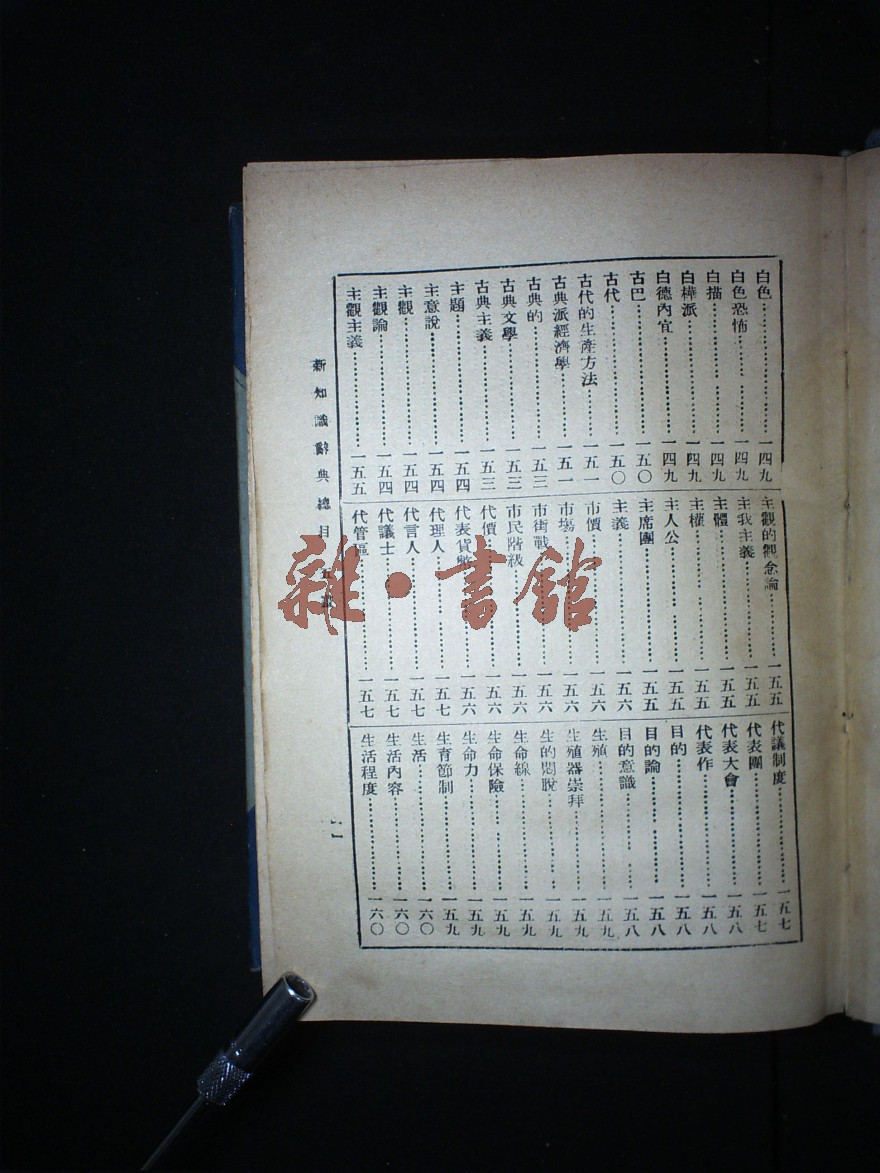 白色……一四九
白色恐怖……一四九
白描……一四九
白樺派……一四九
白德內宜……一四九
古巴……一五〇
古代……一五〇
古代的生產方法……一五一
古典派經濟學……一五一
古典的……一五三
古典文學……一五三
古典主義……一五三
主題……一五四
主意說……一五四
主觀……一五四
主觀論……一五四
主觀主義……一五五
主觀的觀念論……一五五
主我主義……一五五
主體……一五五
主權……一五五
主人公……一五五
主席團……一五五
主義……一五六
市價……一五六
市場……一五六
市街戰……一五六
市民階級……一五六
代價……一五六
代表貨幣……一五六
代理人……一五七
代言人……一五七
代議士……一五七
代管區……一五七
代議制度……一五七
代表團……一五七
代表大會……一五八
代表作……一五八
目的……一五八
目的論……一五八
目的意識……一五八
生殖……一五九
生殖器崇拜……一五九
生的悶脫……一五九
生命線……一五九
生命保險……一五九
生命力……一五九
生育節制……一五九
生活……一六〇
生活內容……一六〇
生活程度……一六〇
新知識辭典總目 五畫
雜·書館